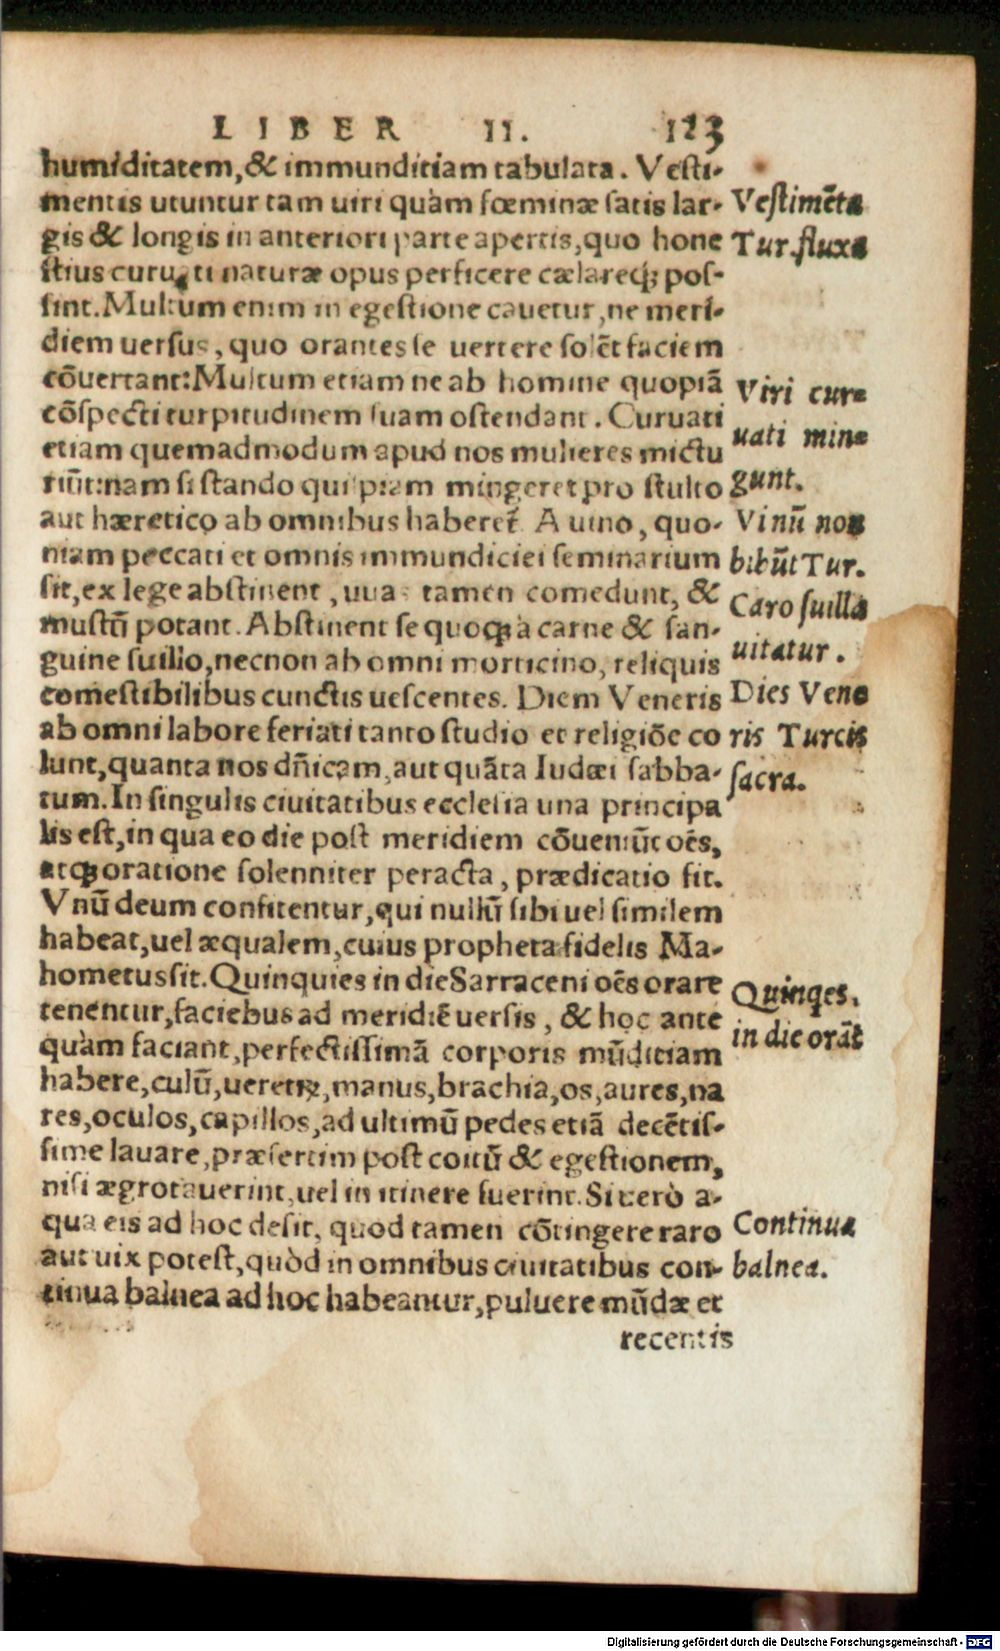 LIBER II. 123
humiditatem,& immunditiam tabulata. Vesti-
mentis utuntur tam uiri quàm fœminæ satis lar-
gis & longis in anteriori parte apertis,quo hone
stius curuati naturæ opus perficere cælareq; pos-
sint. Multum enim in egestione cauetur,ne meri-
diem uersus, quo orantes se uertere solẽt faciem
cõuertant: Multum etiam ne ab homine quopiã
cõspecti turpitudinem suam ostendant. Curuati
etiam quemadmodum apud nos mulieres mictu
riũt: nam si stando quispiam mingeret pro stulto
aut hæretico ab omnibus haberet̃ A uino, quo-
niam peccati et omnis immundiciei seminarium
sit, ex lege abstinent, uuas tamen comedunt, &
mustũ potant. Abstinent se quoq; à carne & san-
guine suillo, necnon ab omni morticino, reliquis
comestibilibus cunctis uescentes. Diem Veneris
ab omni labore feriati tanto studio et religiõe co
lunt,quanta nos dñicam,aut quãta Iudæi sabba-
tum. In singulis ciuitatibus ecclesia una principa
lis est,in qua eo die post meridiem cõueniũt oẽs,
atq; oratione solenniter peracta, prædicatio fit.
Vnũ deum confitentur,qui nullũ sibi uel similem
habeat,uel æqualem,cuius propheta fidelis Ma-
hometus sit. Quinquies in die Sarraceni oẽs orare
tenentur,faciebus ad meridiẽ uersis, & hoc ante
quàm faciant,perfectissimã corporis mũditiam
habere,culũ,ueretꝝ,manus,brachia,os,aures,na
res,oculos,capillos,ad ultimũ pedes etiã decẽtis-
sime lauare,præsertim post coitũ & egestionem,
nisi ægrotauerint,uel in itinere fuerint. Si uerò a-
qua eis ad hoc desit, quod tamen cõtingere raro
aut uix potest,quòd in omnibus ciuitatibus con-
tinua balnea ad hoc habeantur,puluere mũdæ et
recentis
Vestimẽta
Tur.fluxa
Viri cur=
uati min=
gunt.
Vinũ non
bibũt Tur.
Caro suilla
uitatur.
Dies Vene
ris Turcis
sacra.
Quinqes.
in die orãt
Continua
balnea.
Digitalisierung gefördert durch die Deutsche Forschungsgemeinschaft - DFG